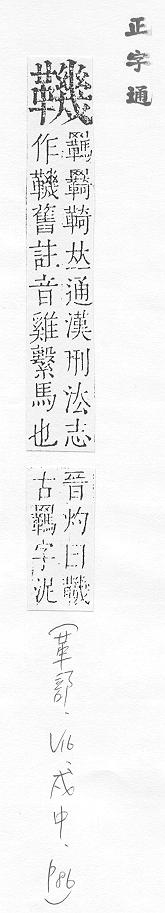 正字通
鞿
羈羇䩭𠀤通漢刑法志
作鞿舊註音雞繫馬也
晉灼曰鞿
古羈字泥
(革部、V16、戌中、P86)